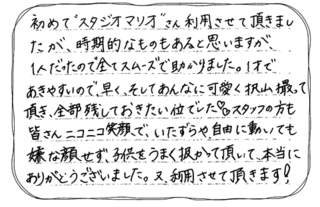 初めて"スタジオマリオ"さん利用させて頂きまし
たが、時期的なものもあると思いますが、
1人だったので全てスムーズで助かりました。1才で
あきやすいので、早く、そしてあんなに可愛く沢山撮って
頂き、全部残しておきたい位でした♡スタッフの方も
皆さんニコニコ笑顔で、いたずらや自由に動いても
嫌な顔せず、お子供をうまく扱かって頂いて、本当に
ありがとうございました。又、利用させて頂きます!